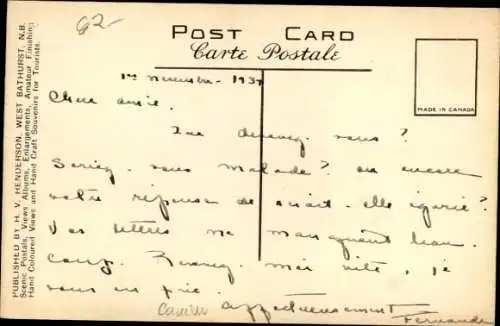 62-
POST CARD
Carte Postale
MADE IN CANADA
PUBLISHED BY H. V. HENDERSON, WEST BATHURST, N.B.
Scenic Postals, Views Albums, Enlargements, Amateur Finishing
Hand Coloured Views and Hand Craft Souvenirs for Tourists.
1er novembre - 193
Chère amie.
Que devenez vous?
Seriez-vous malade? ou encore
votre réponse se serait-elle égarée?
Vos lettres me manquent beau
coup. Revenez moi vite, je
vous en prie.
affectueusement
Fernande